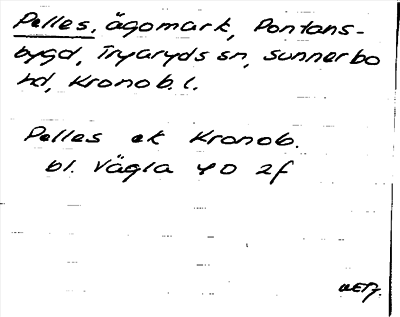 Pelles, ägomark, Pontans-
bygd, Tryaryds sn, Sunnerbo
hd, Kronob. l.
Pelles ek Kronob.
bl. Vägla 4 D 2f